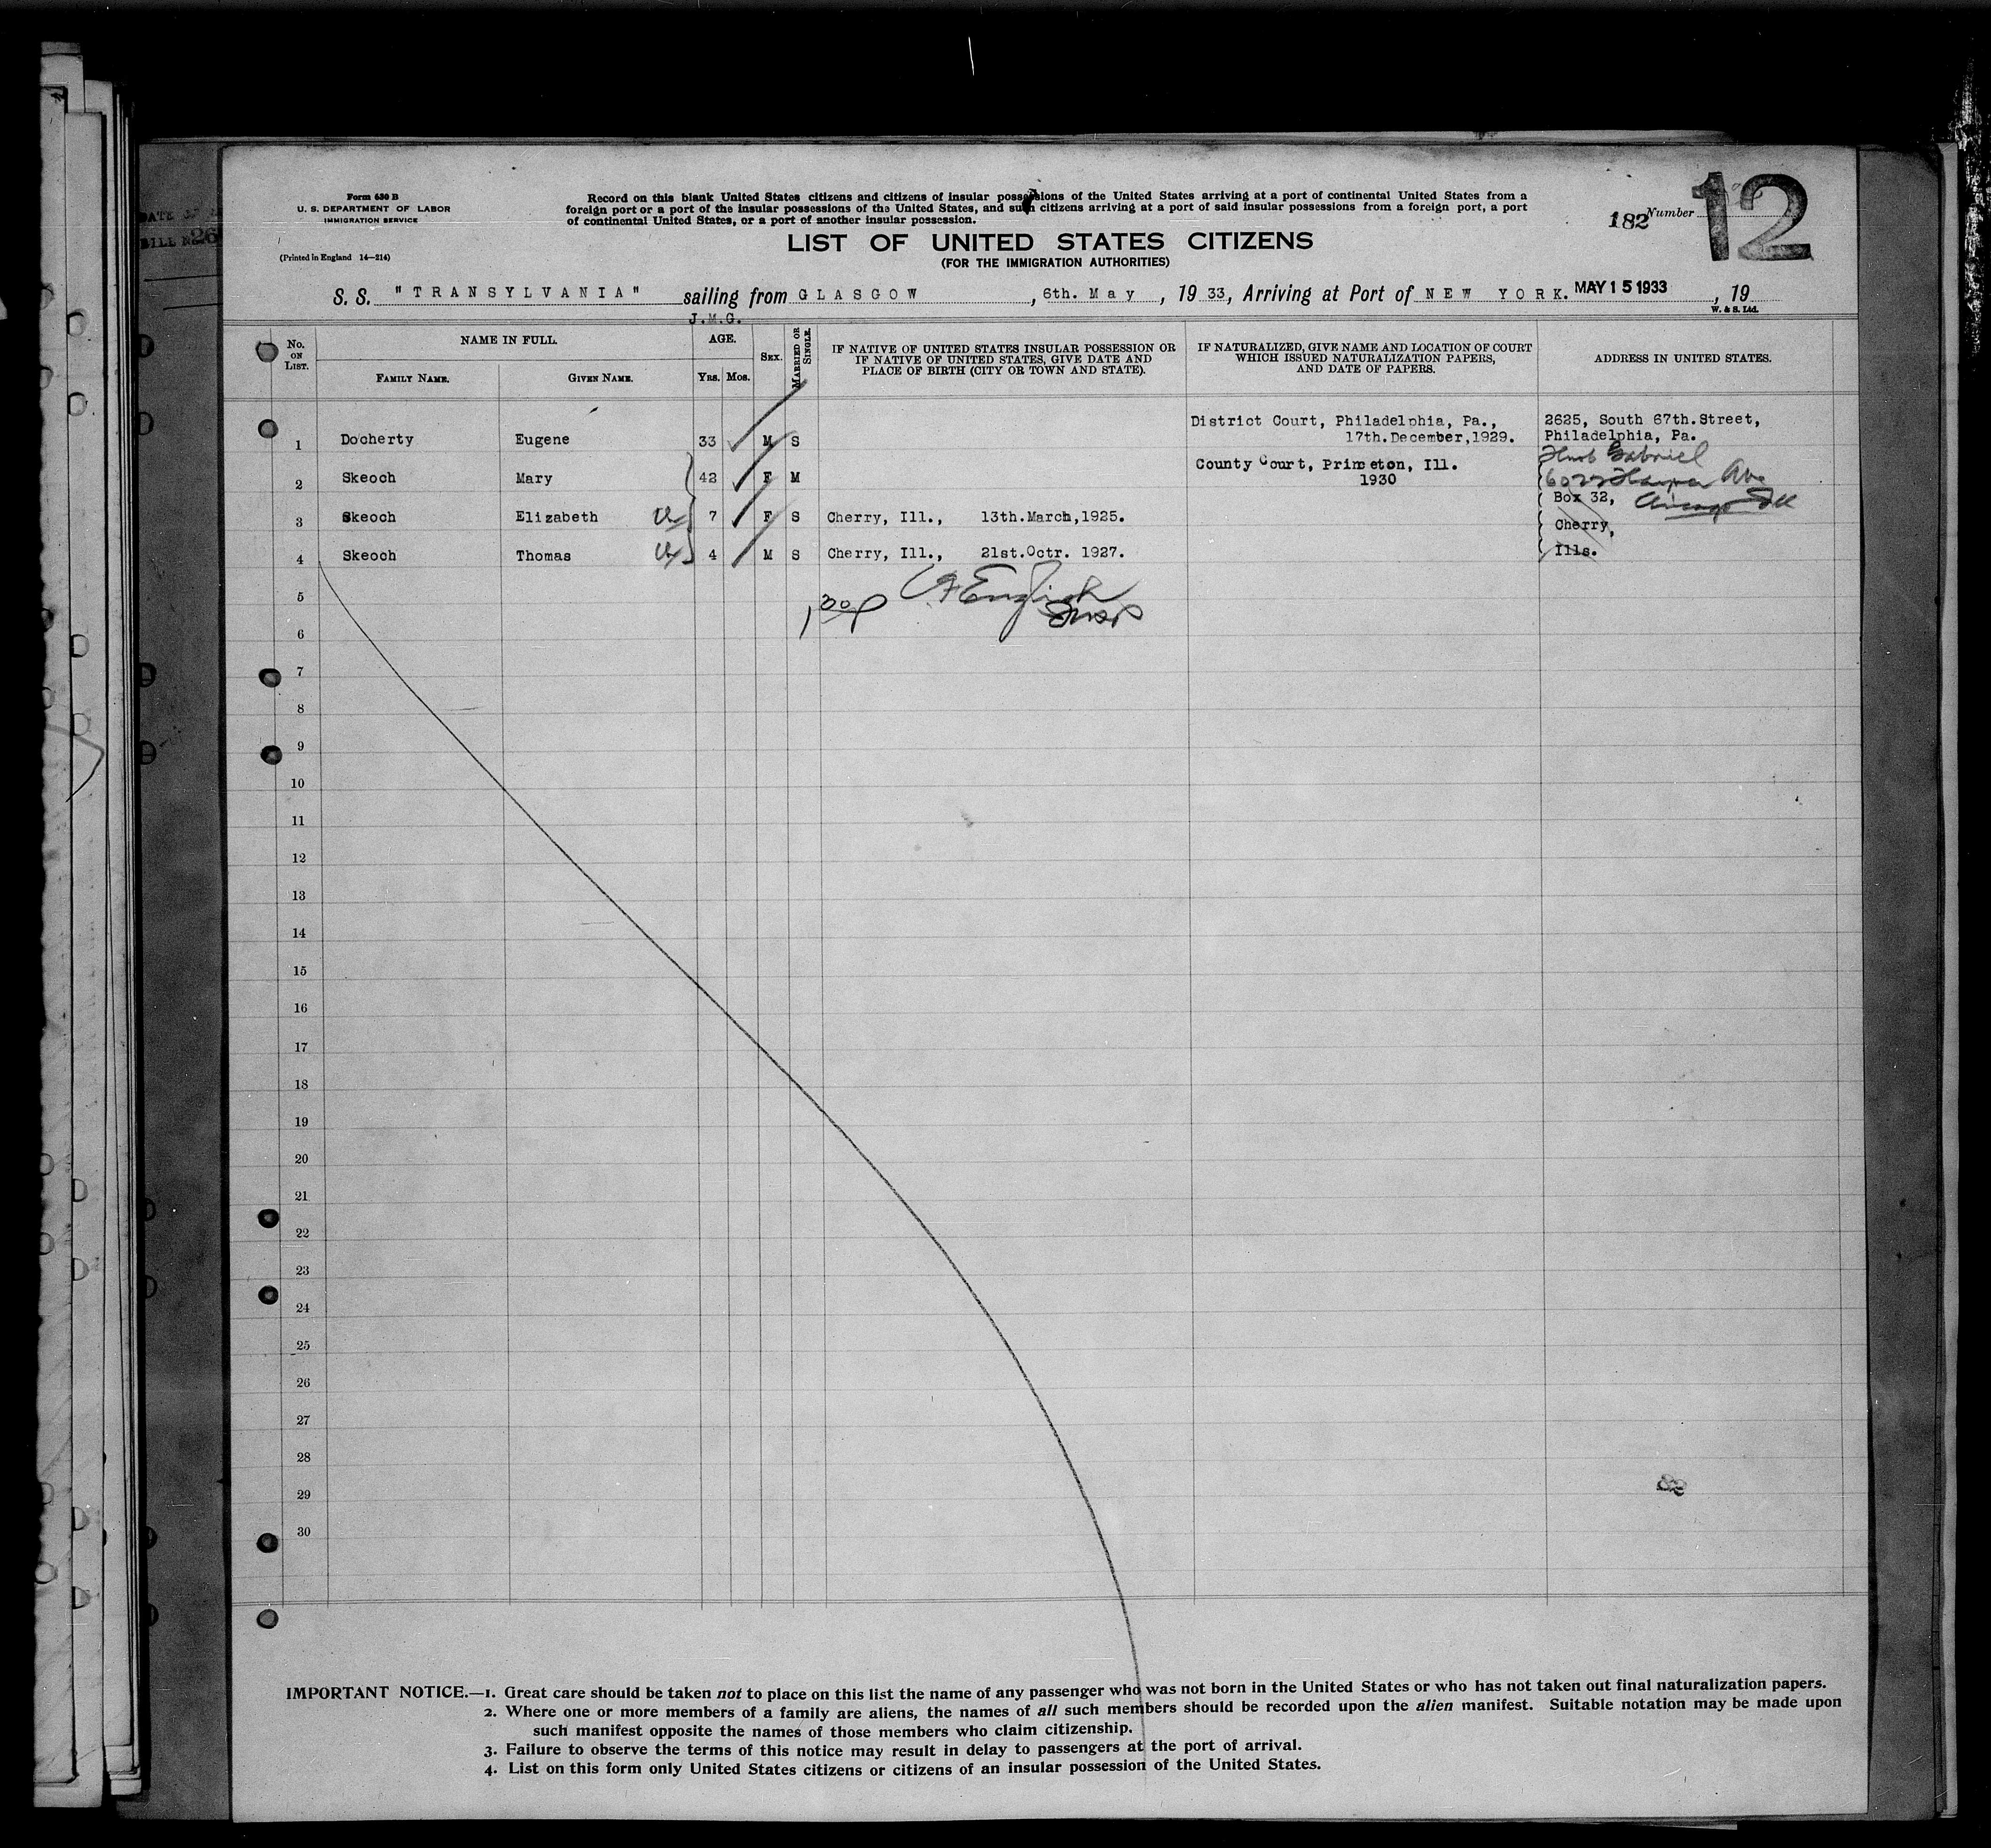 Form 630 B
U. S. DEPARTMENT OF LABOR
IMMIGRATION SERVICE
(Printed in England 14—214)
Record on this blank United States citizens and citizens of insular possessions of the United States arriving at a port of continental United States from a
foreign port or a port of the insular possessions of the United States, and such citizens arriving at a port of said insular possessions from a foreign port, a port
of continental United States, or a port of another insular possession.
182 Number 12
LIST OF UNITED STATES CITIZENS
(FOR THE IMMIGRATION AUTHORITIES)
S. S. "TRANSYLVANIA" sailing from GLASGOW, 6th. May, 19 33, Arriving at Port of NEW YORK. MAY 15 1933, 19
W. & S. Ltd.
J.M.G.
No. ON LIST.
NAME IN FULL.
FAMILY NAME.
GIVEN NAME.
AGE.
Yrs. Mos.
SEX.
MARRIED OR SINGLE.
IF NATIVE OF UNITED STATES INSULAR POSSESSION OR
IF NATIVE OF UNITED STATES, GIVE DATE AND
PLACE OF BIRTH (CITY OR TOWN AND STATE).
IF NATURALIZED, GIVE NAME AND LOCATION OF COURT
WHICH ISSUED NATURALIZATION PAPERS,
AND DATE OF PAPERS.
ADDRESS IN UNITED STATES.
1 Docherty Eugene 33 M S District Court, Philadelphia, Pa., 17th.December,1929. 2625, South 67th.Street, Philadelphia, Pa.
2 Skeoch Mary 42 F M County Court, Princeton, Ill. 1930
Gabriel
Ave
Chicago Ill
3 Skeoch Elizabeth 7 F S Cherry, Ill., 13th.March,1925. Box 32,
Cherry,
4 Skeoch Thomas 4 M S Cherry, Ill., 21st.Octr. 1927. Ills.
English
Insp
5
6
7
8
9
10
11
12
13
14
15
16
17
18
19
20
21
22
23
24
25
26
27
28
29
30
82
IMPORTANT NOTICE.—1. Great care should be taken not to place on this list the name of any passenger who was not born in the United States or who has not taken out final naturalization papers.
2. Where one or more members of a family are aliens, the names of all such members should be recorded upon the alien manifest. Suitable notation may be made upon
such manifest opposite the names of those members who claim citizenship.
3. Failure to observe the terms of this notice may result in delay to passengers at the port of arrival.
4. List on this form only United States citizens or citizens of an insular possession of the United States.